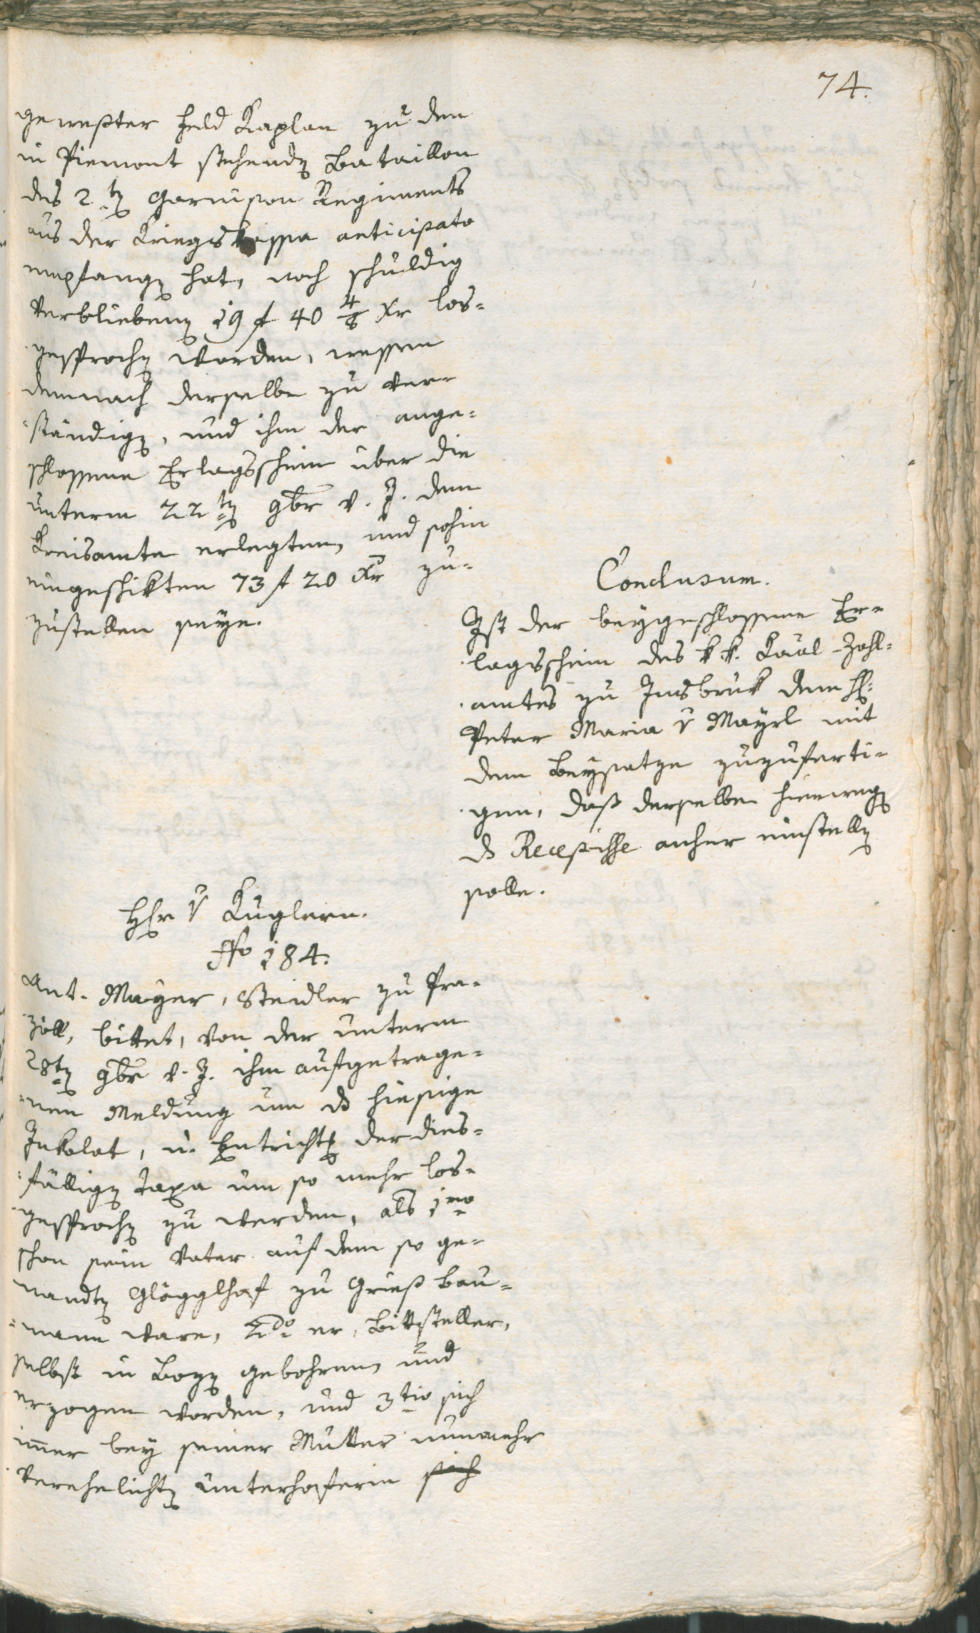 74.
gewester Feld Kaplan zu den
in Piemont stehenden Bataillon
des 2.ten Garnison Regiments
aus der Kriegskassa anticipato
empfangen hat, noch schuldig
verbliebenen 19 f 40 4/8 xr los-
gesprochen worden, wessen
demnach derselbe zu ver-
ständigen, und ihm der ange-
schlossene Erlagsschein über die
unterm 22ten 9br v. J. dem
Kreisamte erlegten, und sohin
eingeschikten 73 f 20 xr zu-
zustellen seye.
Conclusum.
Ist der beygeschlossene Er-
lagsschein des k k. Kaal-Zahl-
amtes zu Insbruk dem H:
Peter Maria v Mayrl mit
dem Beysatze zuzuferti-
gen, daß derselbe hierwegen
ds Recepisse anher einstellen
solle.
Hr v Kuglern.
No 184.
Ant. Mayer, Steidler zu Pra-
zöll, bittet, von der unterm
28ten 9br v. J. ihm aufgetrage-
nen Meldung um ds hiesige
Inkolat, u. Entrichtg der dies-
fälligen Taxa um so mehr los-
gesprochen zu werden, als 1mo
schon sein Vater auf dem so ge-
nandten Glögglhof zu Gries Bau-
mann ware, 2do er, Bittsteller,
selbst in Bozen gebohren, und
erzogen worden, und 3tio sich
immer bey seiner Mutter nunmehr
verehelichten Unterhoferin sich